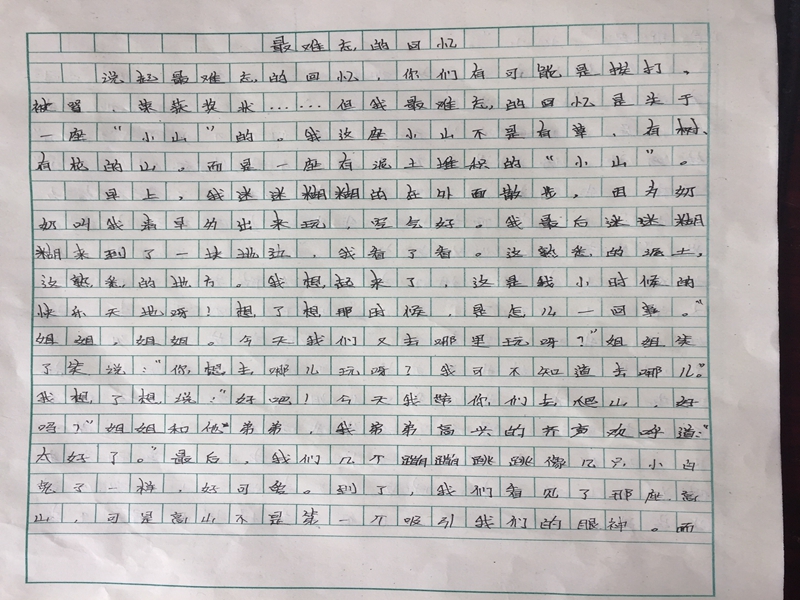 最难忘的回忆
说起最难忘的回忆，你们有可能是挨打、
被骂、荣获奖状……但我最难忘的回忆是关于
一座“小山”的。我这座小山不是有草、有树、
有花的山。而是一座有泥土堆积的“小山”。
早上，我迷迷糊糊的在外面散步，因为奶
奶叫我着早分出来玩，空气好。我最后迷迷糊
糊来到了一块地边，我看了看。这熟悉的泥土，
这熟悉的地方。我想起来了，这是我小时候的
快乐天地呀！想了想那时候，是怎么一回事。“
姐姐，姐姐。今天我们又去哪里玩呀？”姐姐笑
了笑说：“你想去哪儿玩呀？我可不知道去哪儿。”
我想了想说：“好吧！今天我带你们去爬山，好
吗？”姐姐和他弟弟，我弟弟高兴的齐声欢呼道：“
太好了。”最后，我们几个蹦蹦跳跳像几只小白
兔了一样，好可爱。到了，我们看见了那座高
山，可是高山不是第一个吸引我们的眼神。而